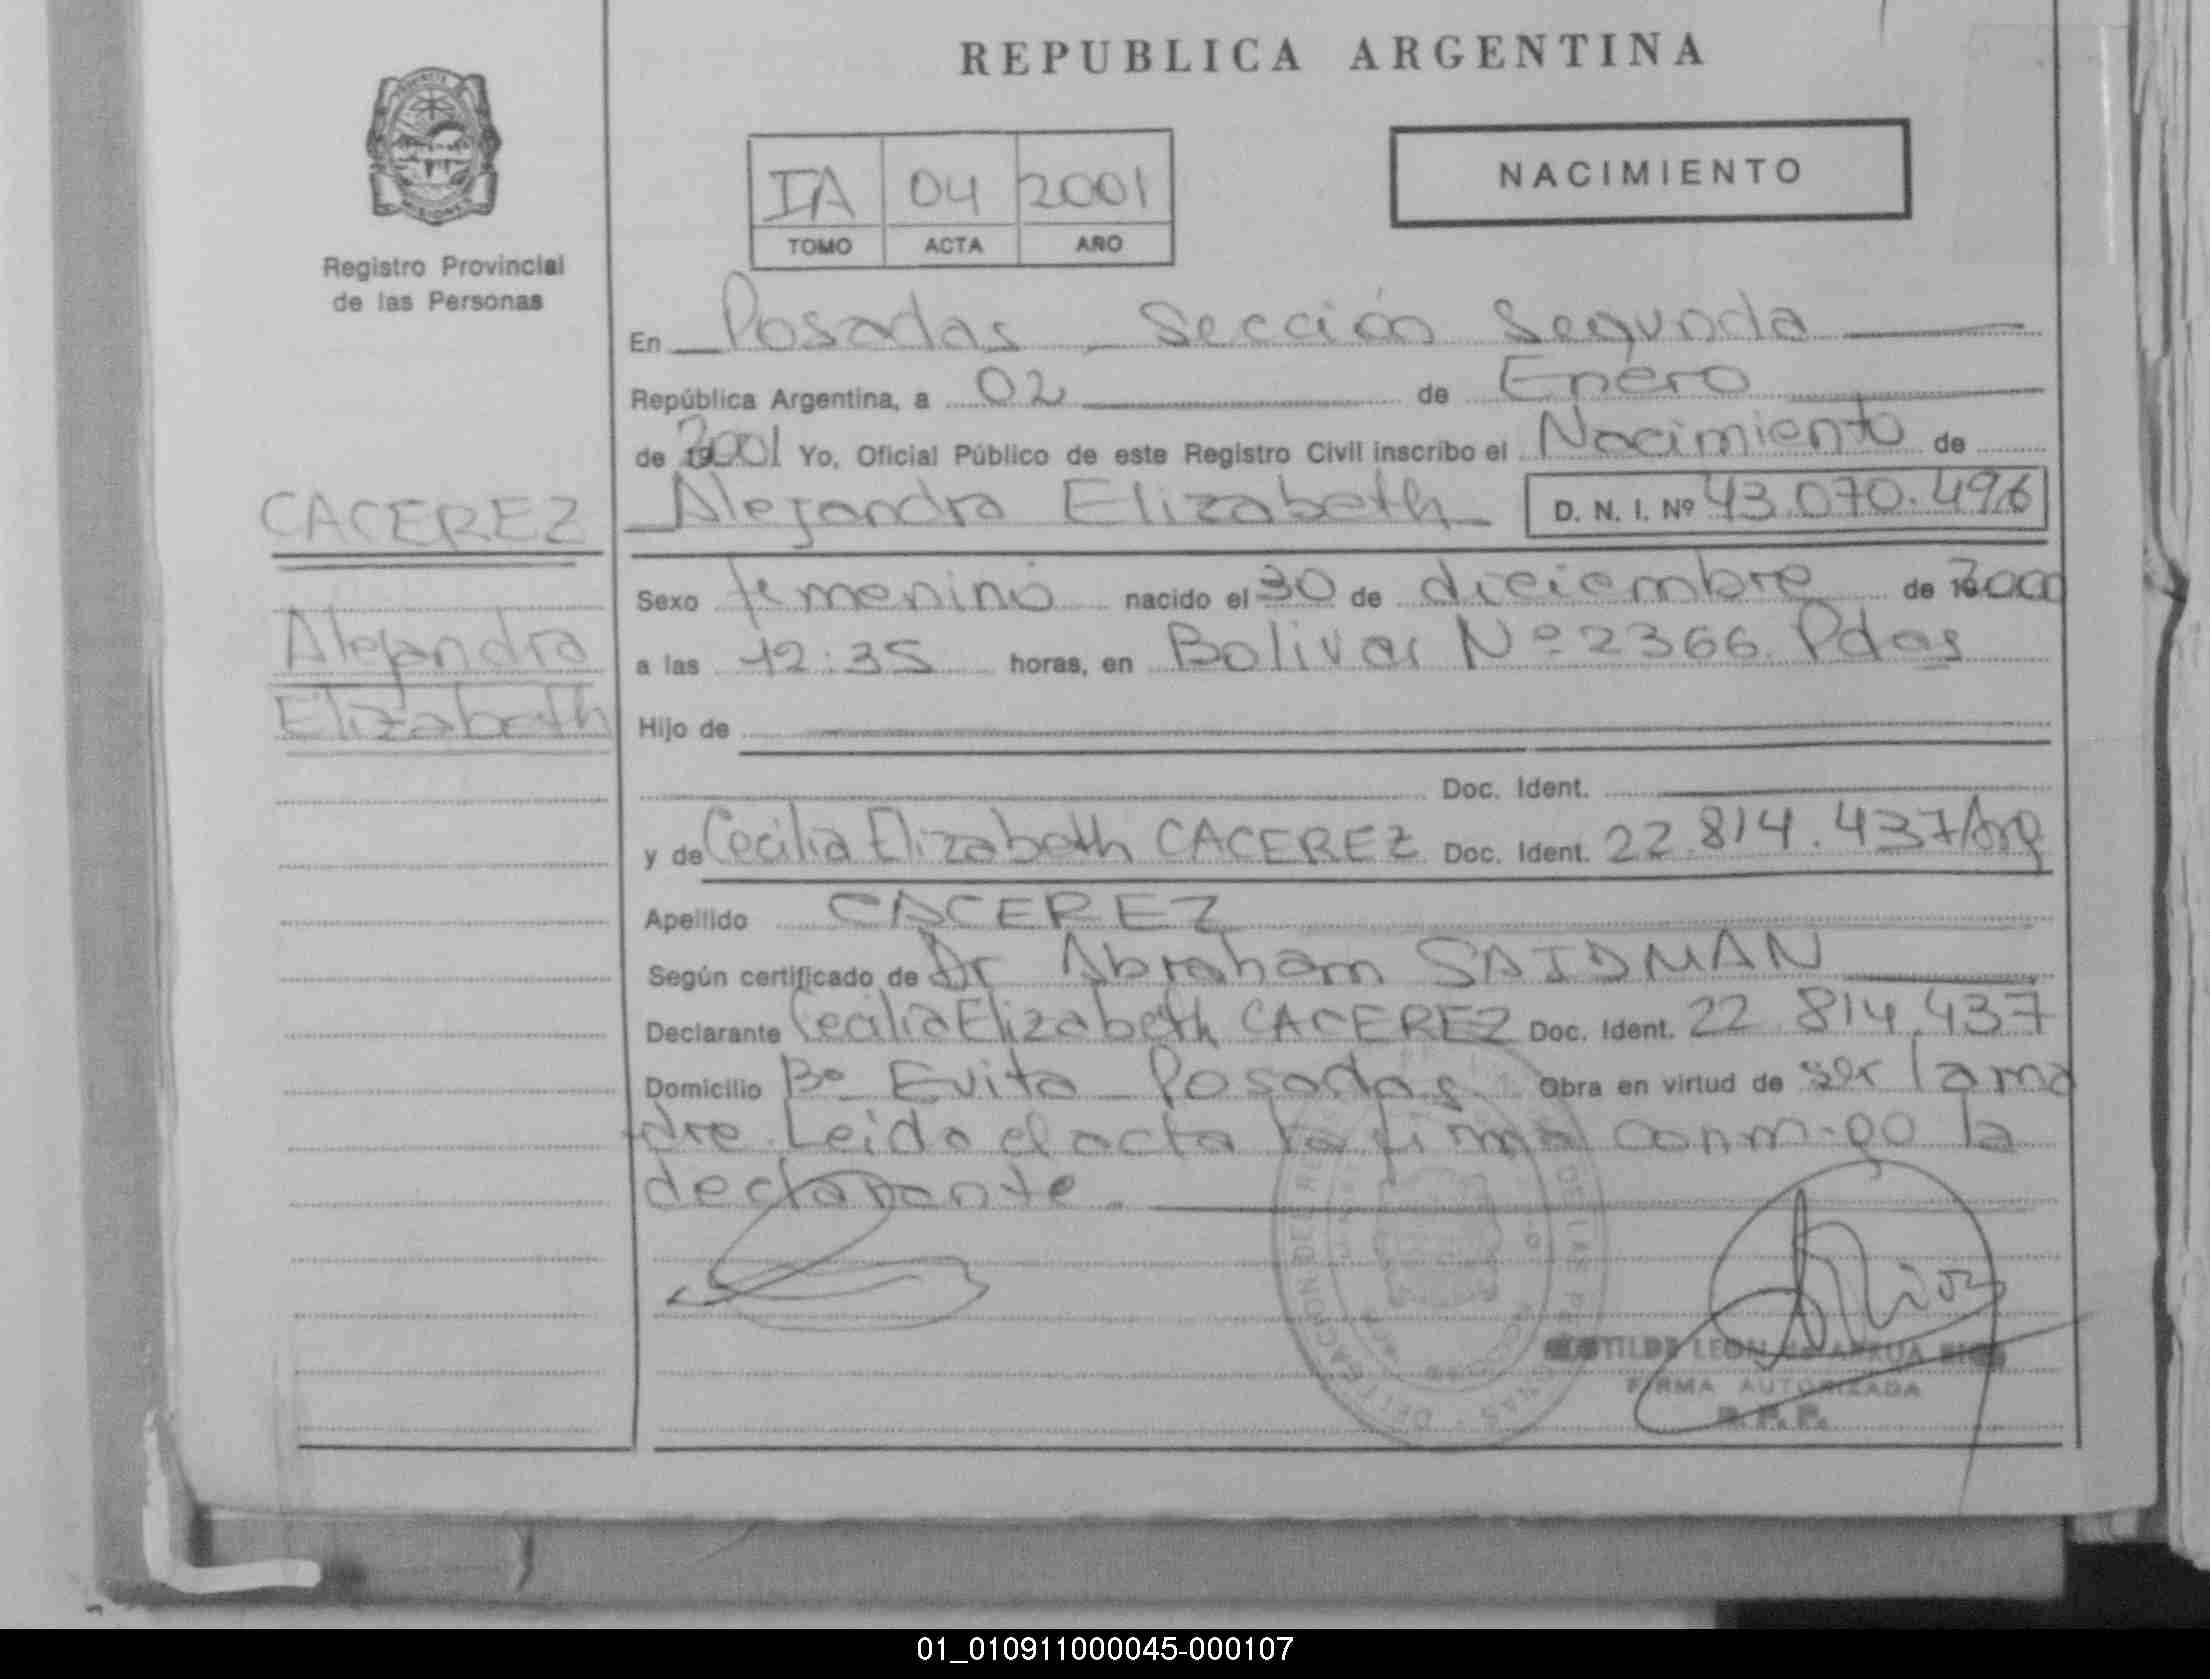 REPUBLICA ARGENTINA
NACIMIENTO
IA 04 2001
TOMO ACTA AÑO
Registro Provincial
de las Personas
En Posadas - Sección Segunda
República Argentina, a 02 de Enero
de 2001 Yo, Oficial Público de este Registro Civil inscribo el Nacimiento de
CACEREZ
Alejandra Elizabeth D. N. I. Nº 43.070.496
Alejandra
Elizabeth
Sexo femenino nacido el 30 de diciembre de 2000
a las 12:35 horas, en Bolivar Nº 2366 Pdas
Hijo de
Doc. Ident.
y de Cecilia Elizabeth CACEREZ Doc. Ident. 22.814.437 Arg
Apellido CACEREZ
Según certificado de Dr Abraham SAIDMAN
Declarante Cecilia Elizabeth CACEREZ Doc. Ident. 22 814.437
Domicilio Bº Evita Posadas Obra en virtud de ser la ma
dre. Leida el acta la firma conmigo la
declarante.
LEON de
FIRMA AUTORIZADA
R. P. P.
01_010911000045-000107